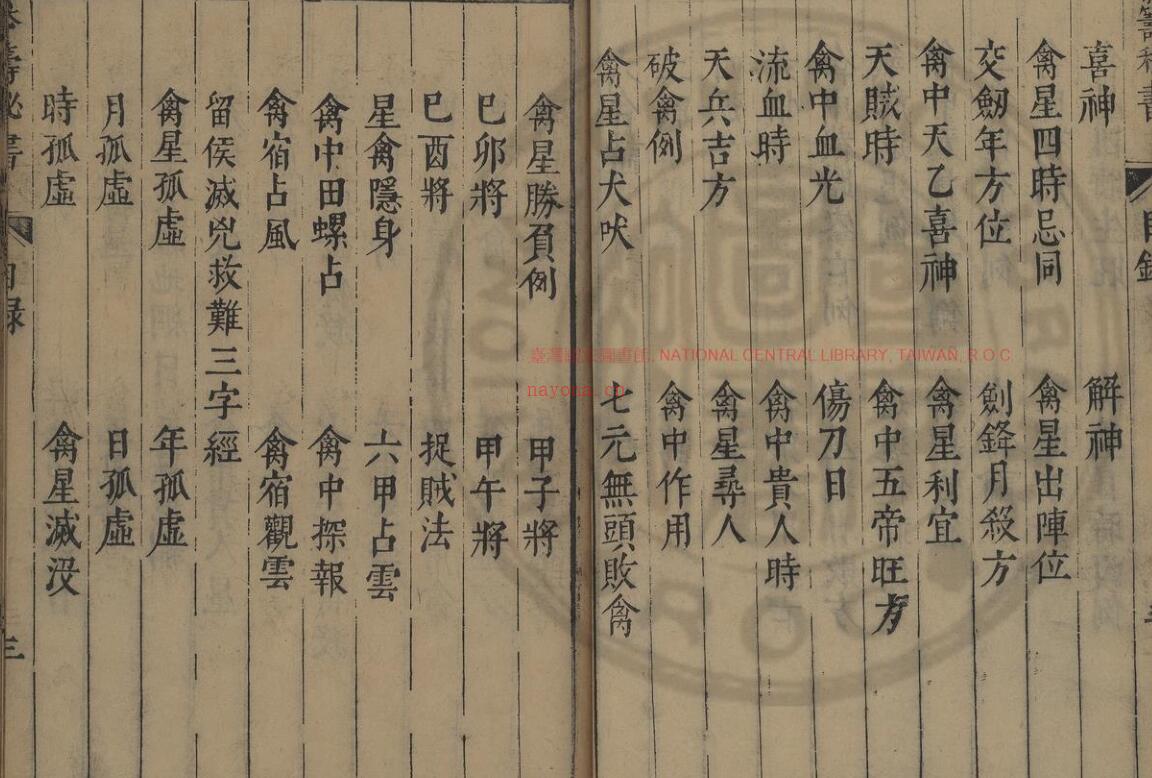 喜神 解神
禽星四時忌同 禽星出陣位
交劒年方位 劍鋒月殺方
禽中天乙喜神 禽星利宜
天賊時 禽中五帝旺方
禽中血光 傷刀日
流血時 禽中貴人時
天兵吉方 禽星尋人
破禽例 禽中作用
禽星占犬吠 七元無頭敗禽
禽星勝負例 甲子將
巳卯將 甲午將
巳酉將 捉賊法
星禽隱身 六甲占雲
禽中田螺占 禽中探報
禽宿占風 禽宿觀雲
留侯滅兇救難三字經
禽星孤虛 年孤虛
月孤虛 日孤虛
時孤虛 禽星滅没
秘書
目録
三
臺灣 圖書館, NATIONAL CENTRAL LIBRARY, TAIWAN, R.O.C
nayona.cn